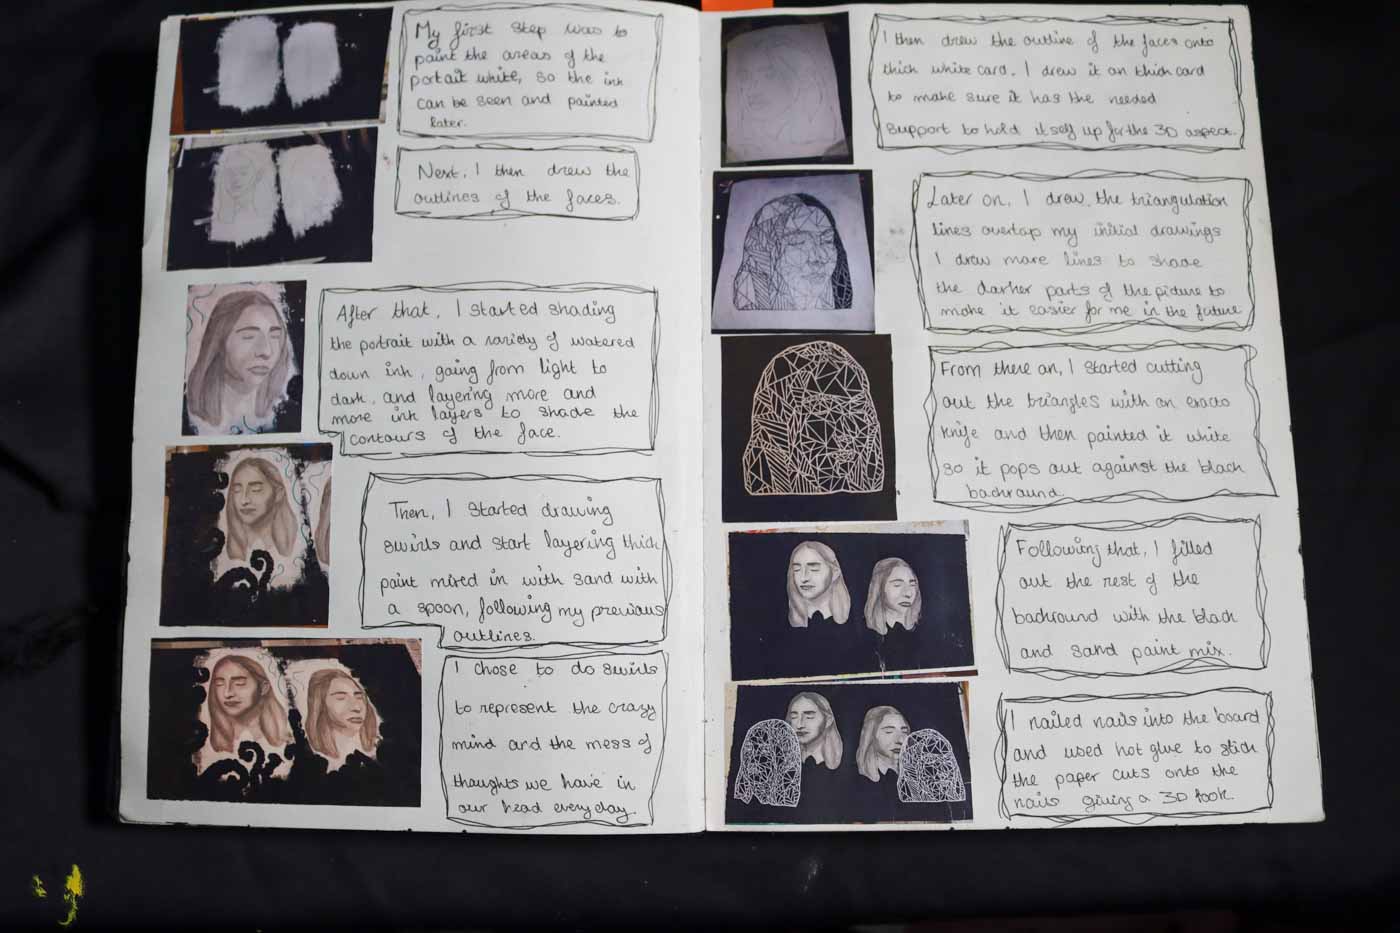 My first step was to
paint the areas of the
portait white, so the ink
can be seen and painted
later.
Next, I then drew the
outlines of the faces.
After that, I started shading
the portrait with a variety of watered
down ink, going from light to
dark, and layering more and
more ink layers to shade the
contours of the face.
Then, I started drawing
swirls and start layering thick
paint mixed in with sand with
a spoon, following my previous
outlines.
I chose to do swirls
to represent the crazy
mind and the mess of
thoughts we have in
our head everyday.
I then drew the outline of the faces onto
thich white card. I drew it on thich card
to make sure it has the needed
support to hold itself up for the 3D aspect.
Later on, I drew the triangulation
lines overtop my initial drawings
I drew more lines to shade
the darker parts of the picture to
make it easier for me in the future
From there on, I started cutting
out the triangles with an exacto
knife and then painted it white
so it pops out against the black
backround.
Following that, I filled
out the rest of the
backround with the black
and sand paint mix.
I nailed nails into the board
and used hot glue to stick
the paper cuts onto the
nails giving a 3D look.